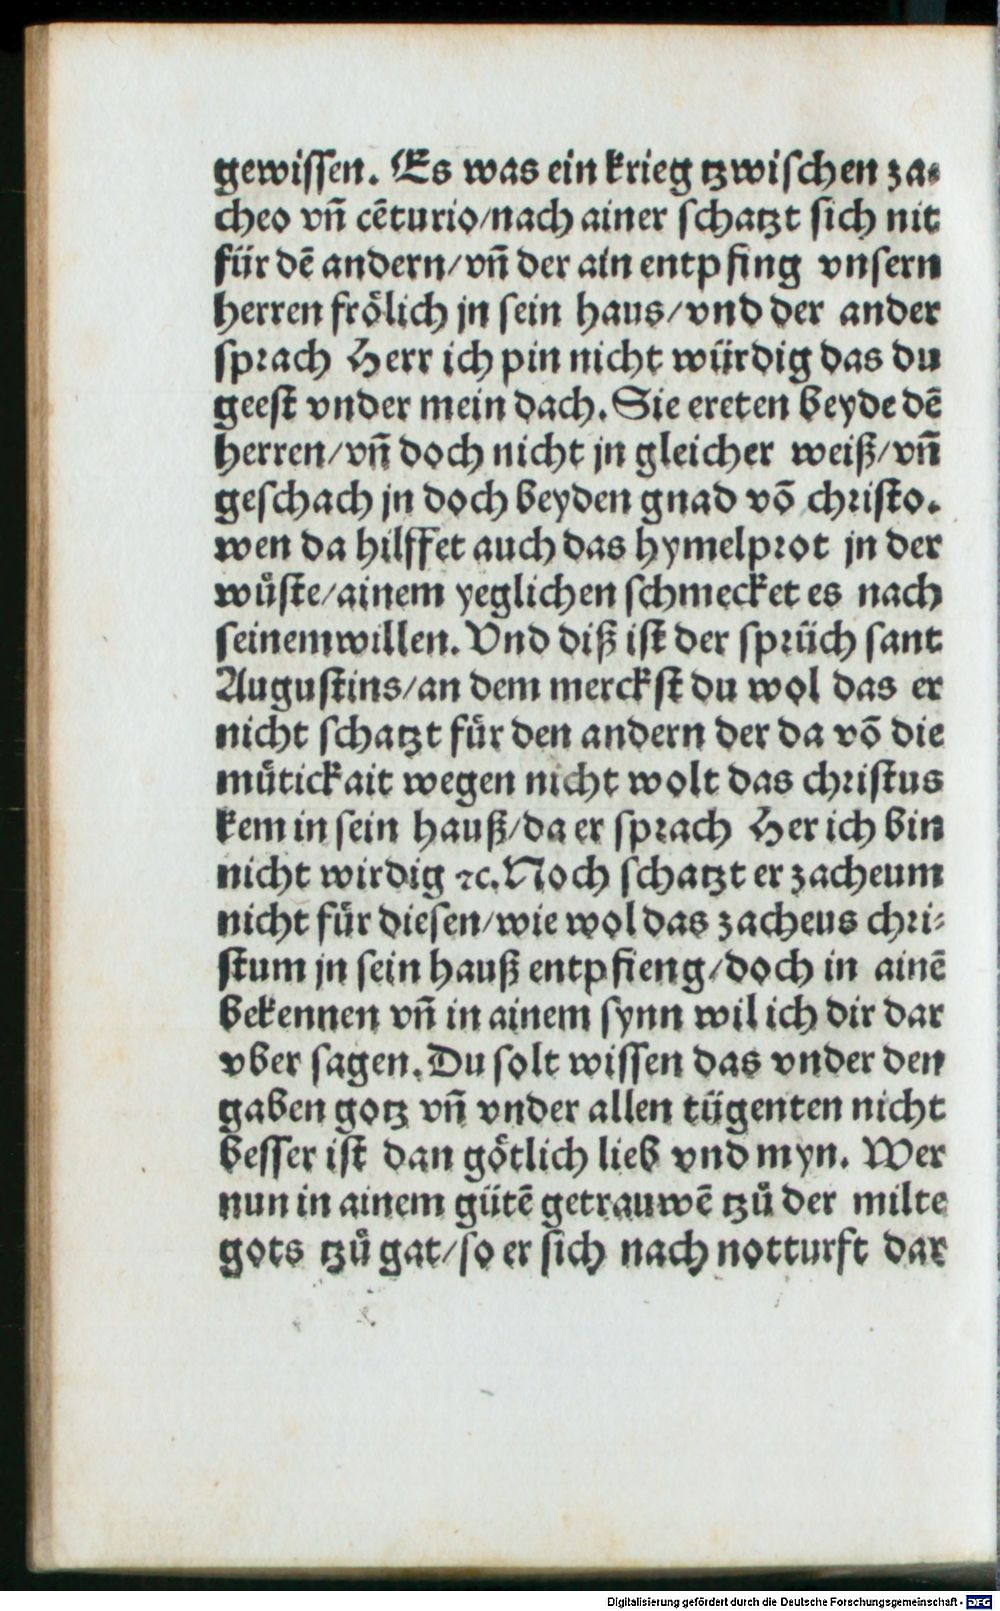 gewissen. Es was ein krieg tzwischen za-
cheo vñ cẽturio/nach ainer schatzt sich nit
für dẽ andern/vñ der ain entpfing vnsern
herren frölich jn sein haus/vnd der ander
sprach Herr ich pin nicht würdig das du
geest vnder mein dach. Sie ereten beyde dẽ
herren/vñ doch nicht jn gleicher weiß/vñ
geschach jn doch beyden gnad võ christo.
wen da hilffet auch das hymelprot jn der
wůste/ainem yeglichen schmecket es nach
seinemwillen. Vnd diß ist der sprüch sant
Augustins/an dem merckst du wol das er
nicht schatzt für den andern der da võ die
můtickait wegen nicht wolt das christus
kem in sein hauß/da er sprach Her ich bin
nicht wirdig ⁊c. Noch schatzt er zacheum
nicht für diesen/wie wol das zacheus chri-
stum jn sein hauß entpfieng/doch in ainẽ
bekennen vñ in ainem synn wil ich dir dar
vber sagen. Du solt wissen das vnder den
gaben gotz vñ vnder allen tügenten nicht
besser ist dan götlich lieb vnd myn. Wer
nun in ainem gütẽ getrauwẽ tzů der milte
gots tzů gat/so er sich nach notturft dar
Digitalisierung gefördert durch die Deutsche Forschungsgemeinschaft - DFG